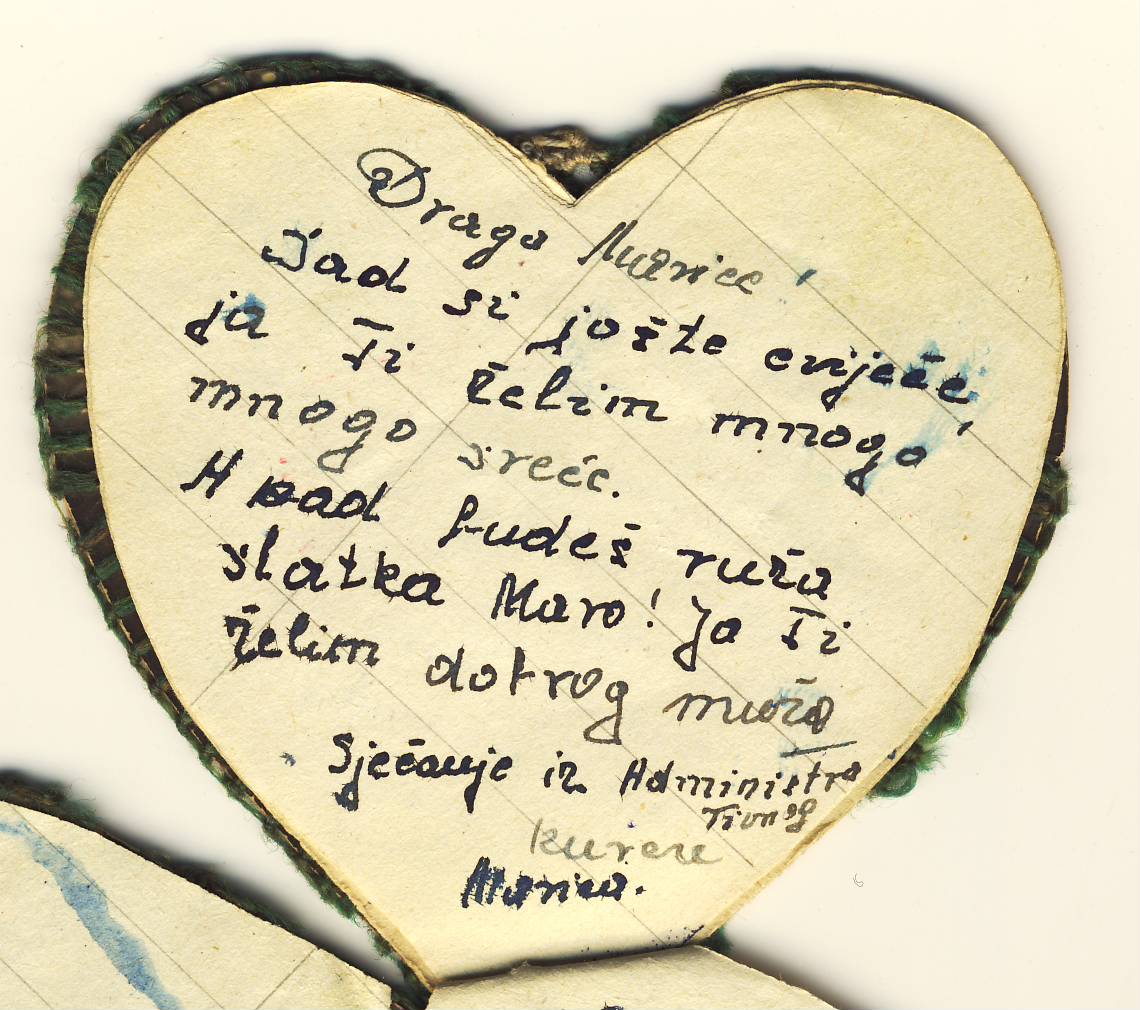 Draga Marice!
Sad si jošte cvijeće,
ja Ti želim mnogo,
mnogo sreće.
A kad budeš ruža
slatka Maro! Ja Ti
želim dobrog muža
Sjećanje iz Administra
tivnog
kursa
Marica.